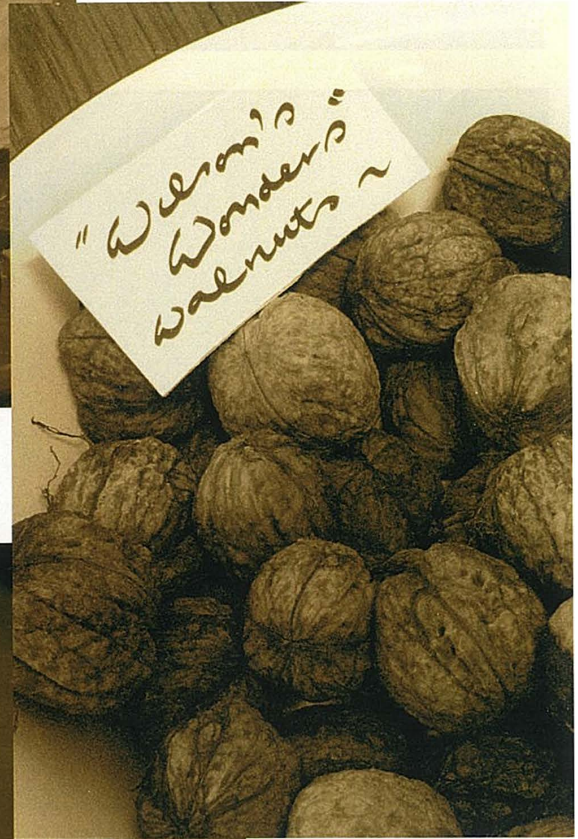 "Wilson's
Wonders"
walnuts ~